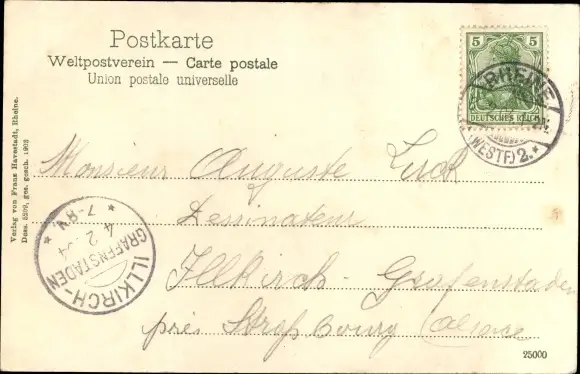 Postkarte
Weltpostverein — Carte postale
Union postale universelle
5 5
DEUTSCHES REICH
RHEINE
(WESTF.) 2. *
Verlag von Franz Havestadt, Rheine.
Dess. 5209, ges. gesch. 1902
Monsieur Auguste Luck
Dessinateur
Illkirch-Grafenstaden
près Straßbourg (Alsace)
* 7-8N. *
4 2 04
ILLKIRCH-GRAFENSTADEN
25000